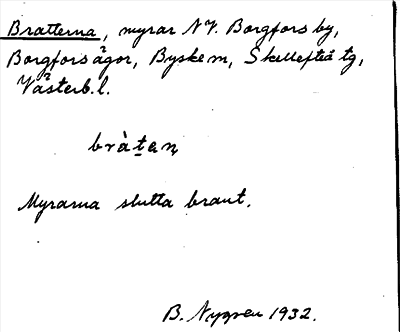 Bratterna, myrar NV. Borgfors by,
Borgfors ägor, Byske m, Skellefteå tg,
Västerb. l.
bràtan
Myrarna slutta brant.
B. Nygren 1932.